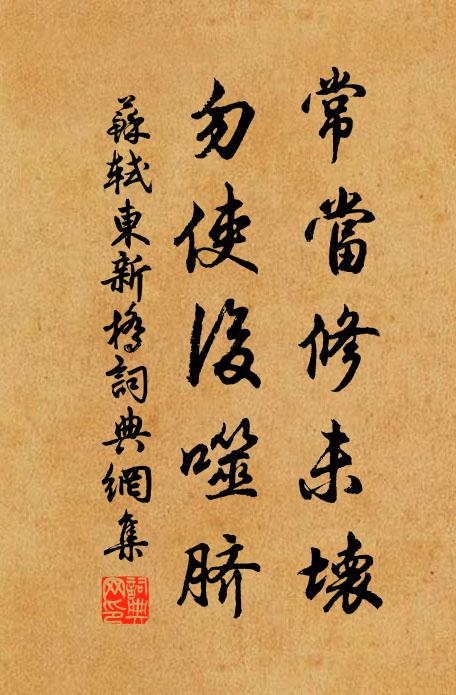 常當修未壞
勿使後噬脐
蘇軾東新橋詞典網集
詞典网印